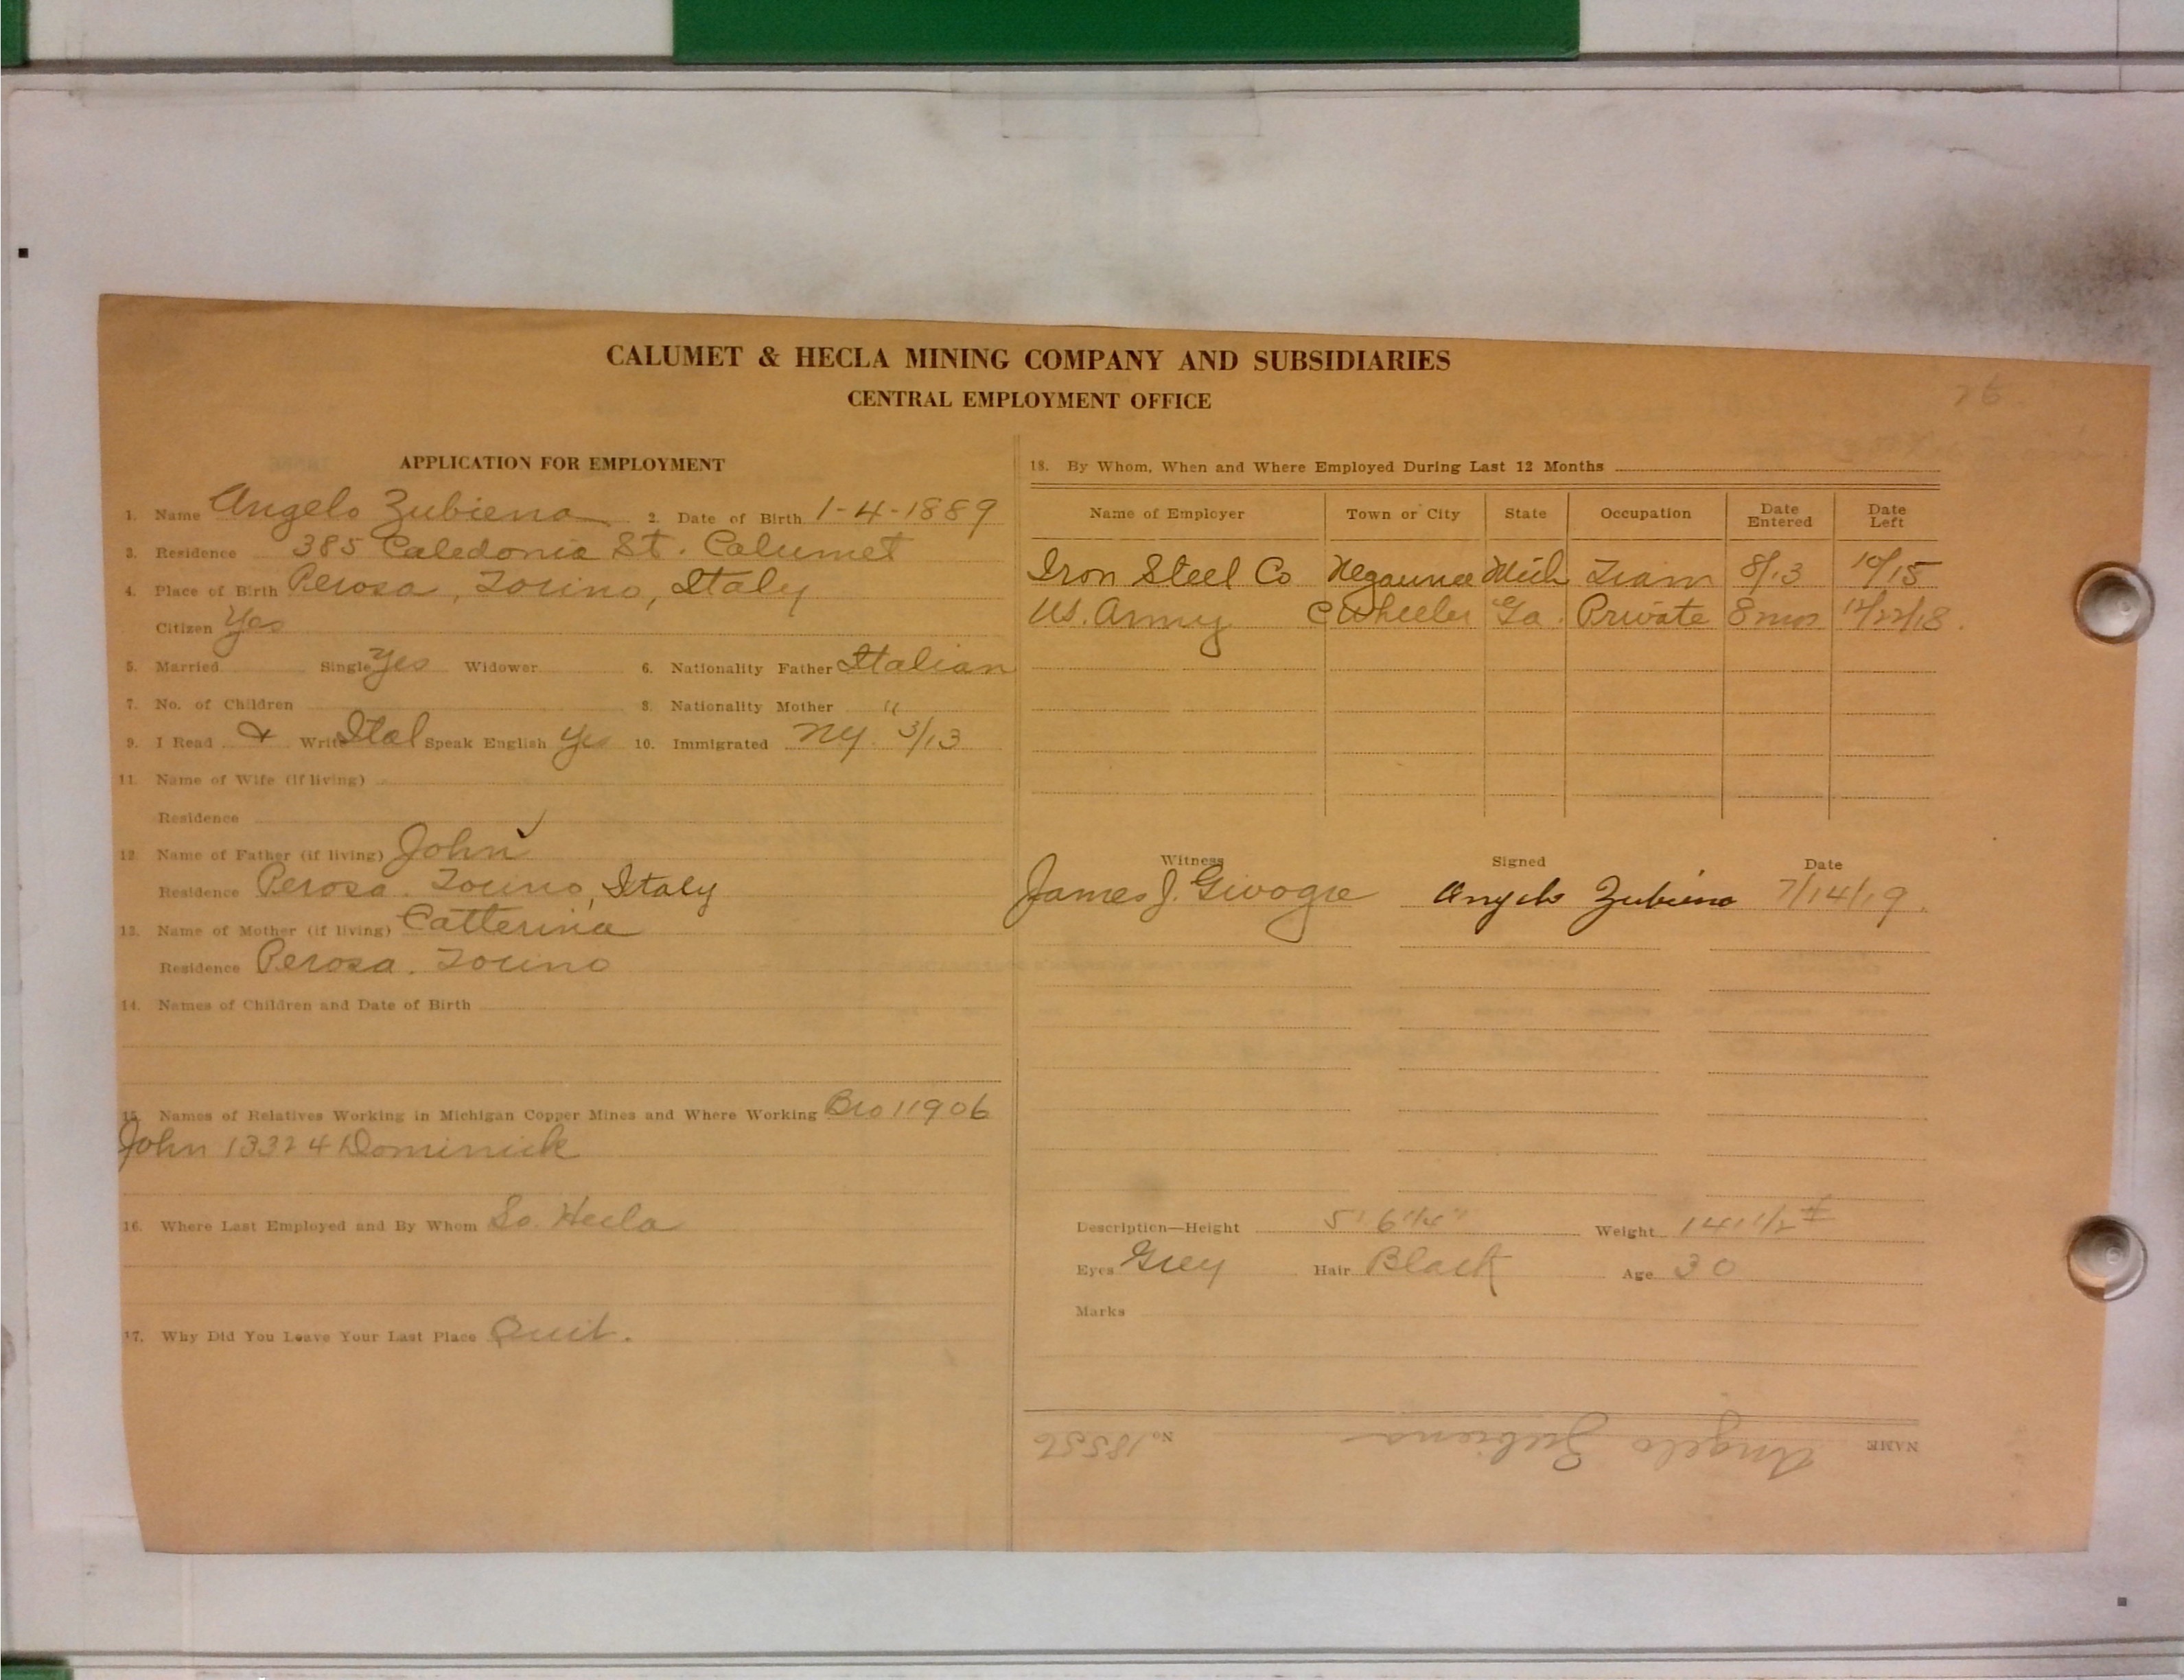 CALUMET & HECLA MINING COMPANY AND SUBSIDIARIES
CENTRAL EMPLOYMENT OFFICE
26
APPLICATION FOR EMPLOYMENT
1. Name Angelo Zubiena 2. Date of Birth 1-4-1889
3. Residence 385 Caledonia St. Calumet
4. Place of Birth Perosa, Torino, Italy
Citizen Yes
5. Married Single Yes Widower 6. Nationality Father Italian
7. No. of Children 8. Nationality Mother "
9. I Read & Write Ital Speak English Yes 10. Immigrated NY. 3/13
11. Name of Wife (if living)
Residence
12. Name of Father (if living) John
Residence Perosa. Torino, Italy
13. Name of Mother (if living) Catterina
Residence Perosa. Torino
14. Names of Children and Date of Birth
15. Names of Relatives Working in Michigan Copper Mines and Where Working Bro 11906
John 13324 Dominick
16. Where Last Employed and By Whom So. Hecla
17. Why Did You Leave Your Last Place Quit.
18. By Whom, When and Where Employed During Last 12 Months
Name of Employer Town or City State Occupation Date Entered Date Left
Iron Steel Co Negaunee Mich Tram 8/13 10/15
US. Army C Wheeler Ga. Private 8 mos 12/22/18.
Witness Signed Date
James J. Givogre Angelo Zubiena 7/14/19.
Description—Height 5' 6 1/4" Weight 141 1/2 #
Eyes Grey Hair Black Age 30
Marks
NAME Angelo Zubiena No. 18556